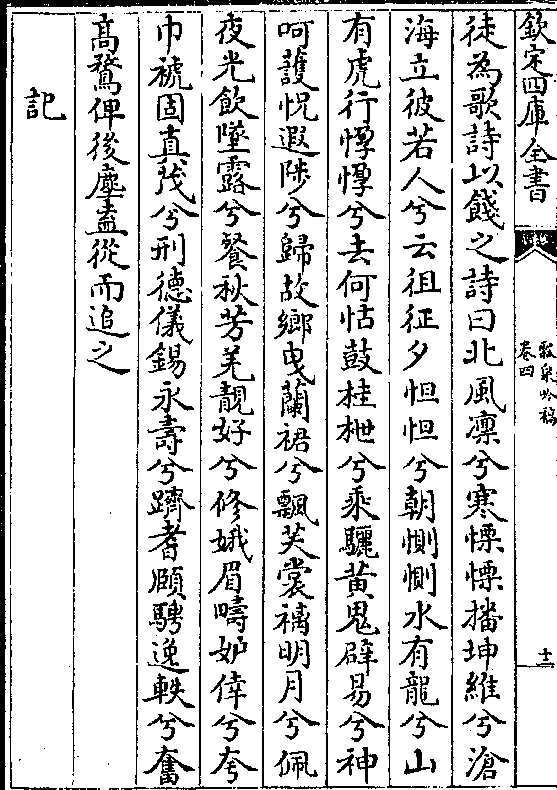 欽定四庫全書
瓢泉吟稿
卷四
十二
徒為歌詩以餞之詩曰北風凜兮寒慄慄播坤維兮滄
海立彼若人兮云徂征夕怛怛兮朝惻惻水有龍兮山
有虎行惸惸兮去何怙鼓桂枻兮乘驪黄鬼辟易兮神
呵護怳遐陟兮歸故鄉曳蘭裙兮飄芙裳褵明月兮佩
夜光飲墜露兮餐秋芳羌靚好兮修娥眉疇妒倖兮夸
巾褫固真茂兮刑德儀錫永壽兮躋耆頤騁逸軼兮奮
高騖俾後塵盍從而追之
記